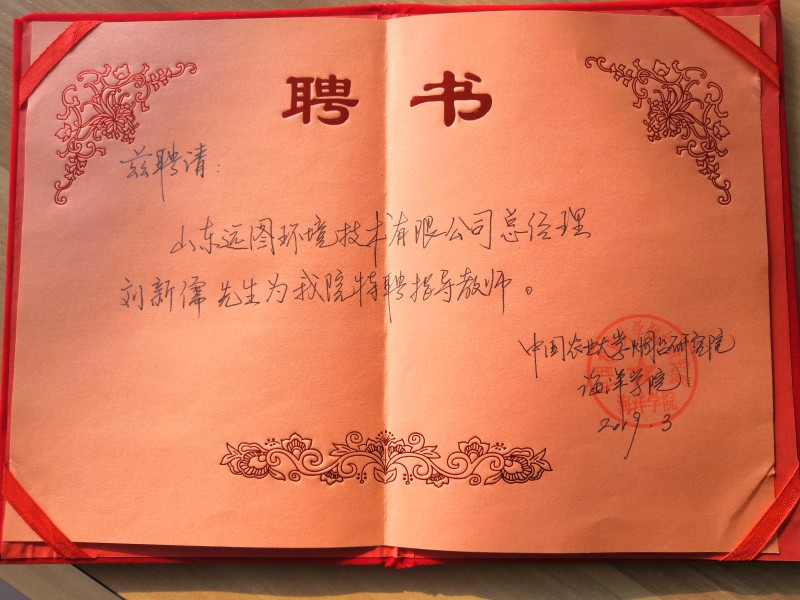 聘书
兹聘请：
山东远图环境技术有限公司总经理
刘新儒先生为我院特聘指导教师。
中国农业大学烟台研究院
海洋学院
海洋学院
2019.3